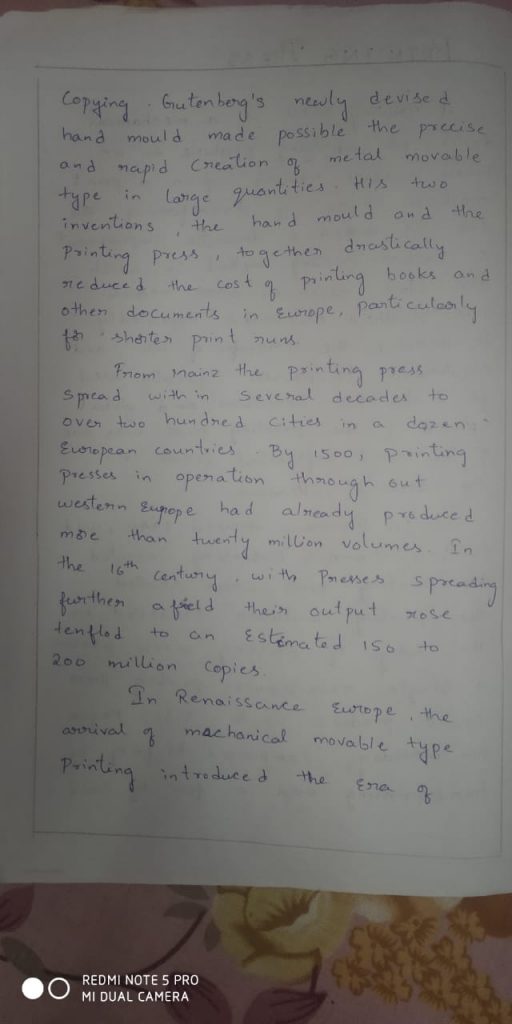 Copying. Gutenberg's newly devised
hand mould made possible the precise
and rapid creation of metal movable
type in large quantities. His two
inventions, the hand mould and the
Printing press, together drastically
reduced the cost of printing books and
other documents in Europe, particularly
for shorter print runs.
From Mainz the printing press
spread with in several decades to
over two hundred cities in a dozen
European countries. By 1500, printing
presses in operation through out
western Europe had already produced
more than twenty million volumes. In
the 16th century, with Presses spreading
further afield their output rose
tenflod to an Estimated 150 to
200 million copies.
In Renaissance Europe, the
arrival of mechanical movable type
Printing introduced the Era of
REDMI NOTE 5 PRO
MI DUAL CAMERA